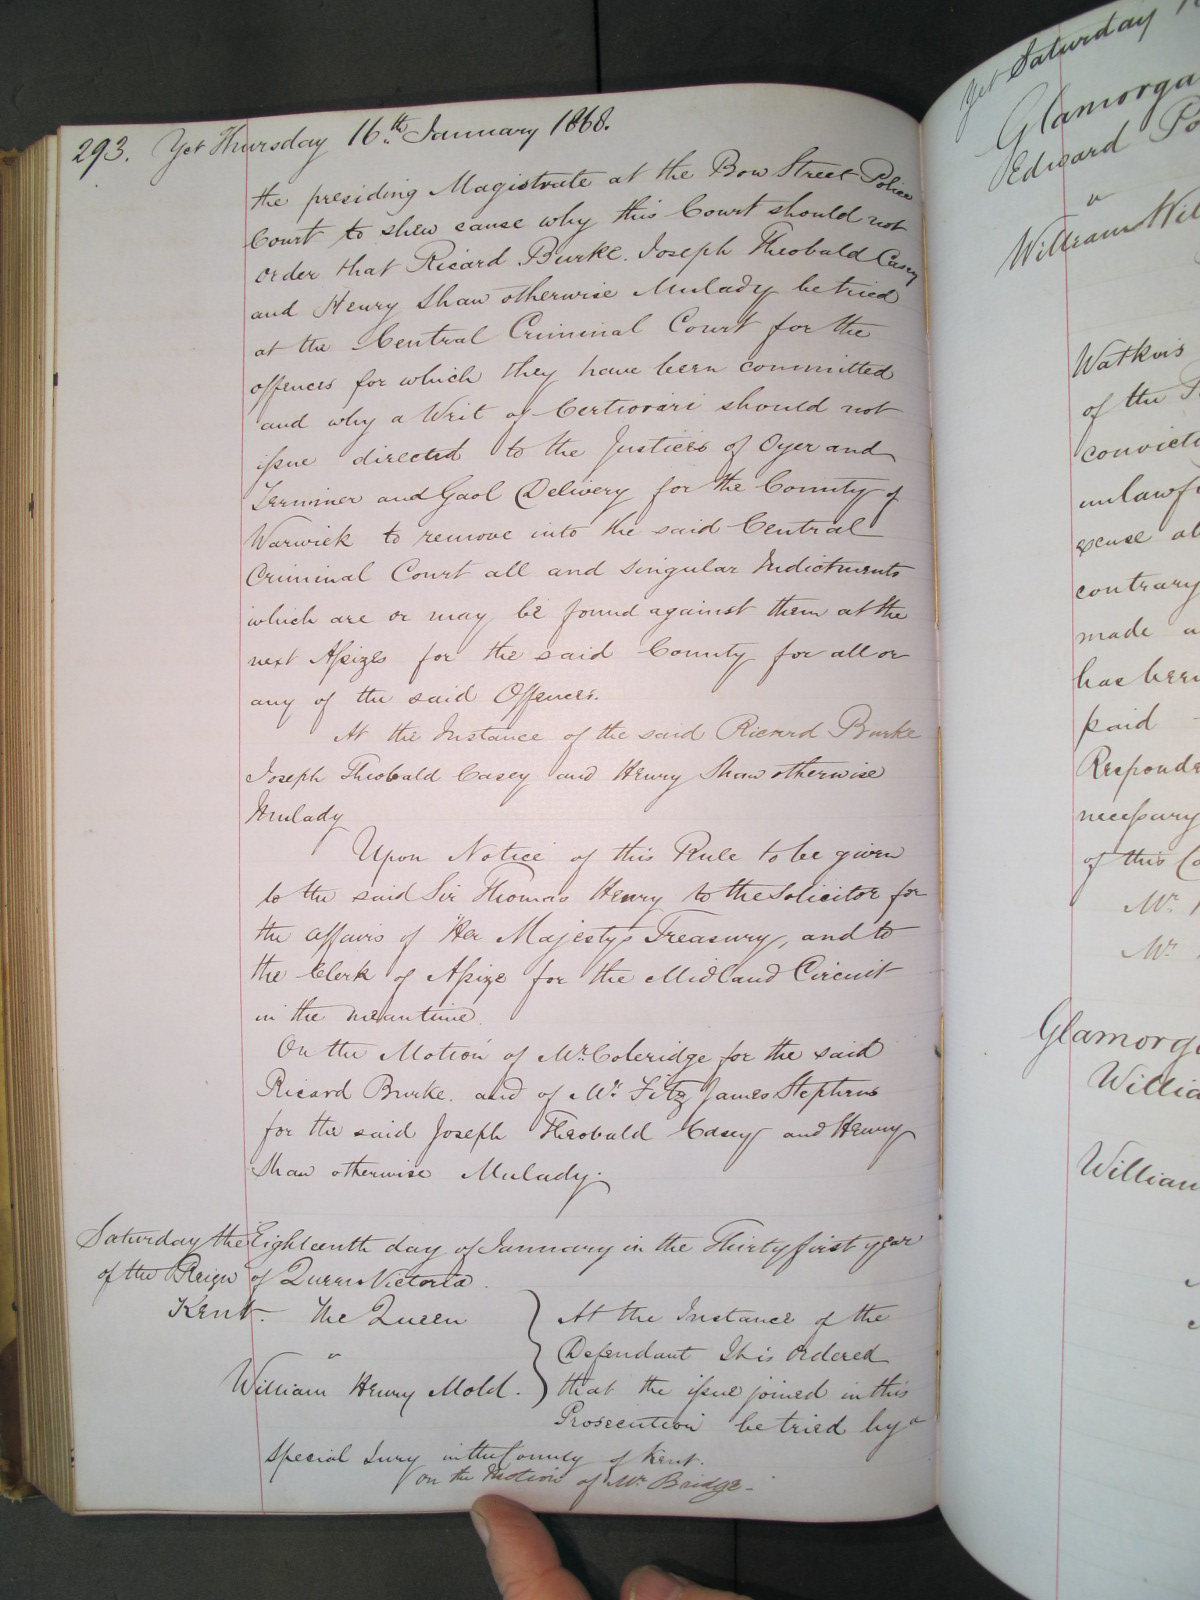 293. Yet Thursday 16th January 1868.
the presiding Magistrate at the Bow Street Police
Court to shew cause why this Court should not
order that Ricard Burke. Joseph Theobald Casey
and Henry Shaw otherwise Mulady be tried
at the Central Criminal Court for the
offences for which they have been committed
and why a Writ of Certiorari should not
issue directed to the Justices of Oyer and
Terminer and Gaol Delivery for the County of
Warwick to remove into the said Central
Criminal Court all and singular Indictments
which are or may be found against them at the
next Assizes for the said County for all or
any of the said Offences.
At the Instance of the said Ricard Burke
Joseph Theobald Casey and Henry Shaw otherwise
Mulady
Upon Notice of this Rule to be given
to the said Sir Thomas Henry to the Solicitor for
the affairs of Her Majesty's Treasury, and to
the Clerk of Assize for the Midland Circuit
in the meantime.
On the Motion of Mr. Coleridge for the said
Ricard Burke. and of Mr. Fitz James Stephens
for the said Joseph Theobald Casey and Henry
Shaw otherwise Mulady.
Saturday the Eighteenth day of January in the Thirty first year
of the Reign of Queen Victoria.
Kent. The Queen
v
William Henry Mold.
At the Instance of the
Defendant It is ordered
that the issue joined in this
Prosecution be tried by a
special Jury in the County of Kent.
on the Motion of Mr. Bridge.
Yet Saturday
Glamorga
Edward Po
v
William Wil
Watkins
of the
convict
unlawf
contrary
made a
has been
paid
Responde
necessary
of this Co
Mr.
Mr.
Glamorg
Willia
William